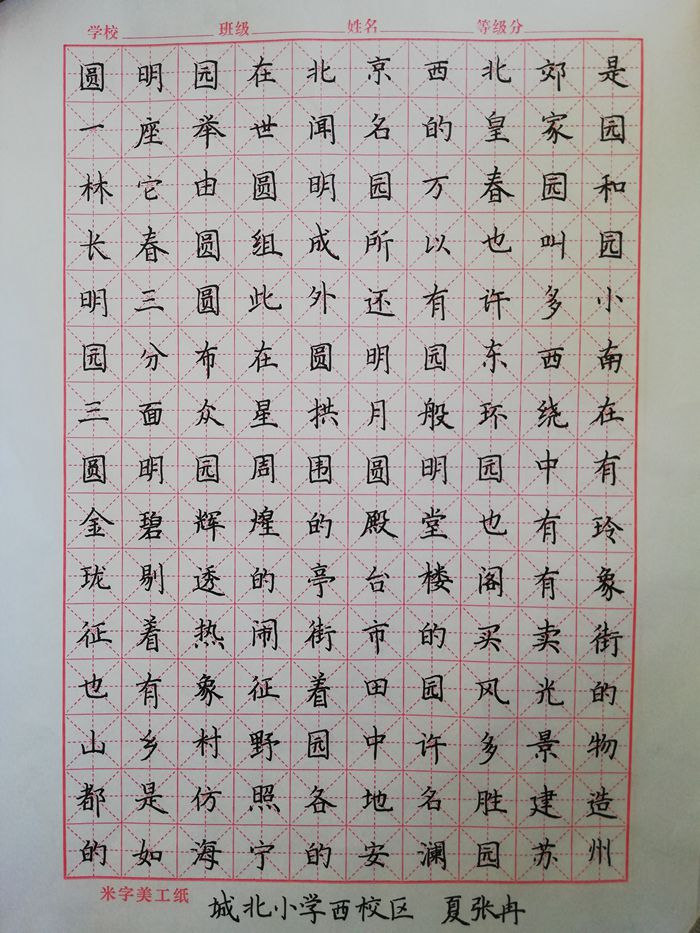 学校 班级 姓名 等级分
圆明园在北京西北郊是
一座举世闻名的皇家园
林它由圆明园万春园和
长春圆组成所以也叫园
明三圆此外还有许多小
园分布在圆明园东西南
三面众星拱月般环绕在
圆明园周围圆明园中有
金碧辉煌的殿堂也有玲
珑剔透的亭台楼阁有象
征着热闹街市的买卖街
也有象征着田园风光的
山乡村野园中许多景物
都是仿照各地名胜建造
的如海宁的安澜园苏州
米字美工纸
城北小学西校区 夏张冉